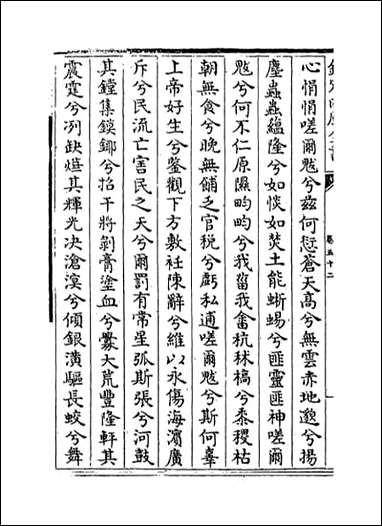 心悁悁嗟爾魃兮茲何愆蒼天高兮無雲赤地邈兮揚
塵蟲蟲蘊隆兮如惔如焚土能蜥蜴兮匪靈匪神嗟爾
魃兮何不仁原隰畇畇兮我菑我畬秔秫槁兮黍稷枯
朝無食兮晚無餔乏官稅兮虧私逋嗟爾魃兮斯何辜
上帝好生兮鑒觀下方敷衽陳辭兮維以永傷海濵廣
斥兮民流亡害民之天兮爾罰有常星弧斯張兮河鼓
其鏜集鏌鎁兮招干將剝膏塗血兮釁大荒豐隆軒其
震霆兮冽缺㷔其輝光决滄溟兮傾銀潢驅長蛟兮舞
卷五十二